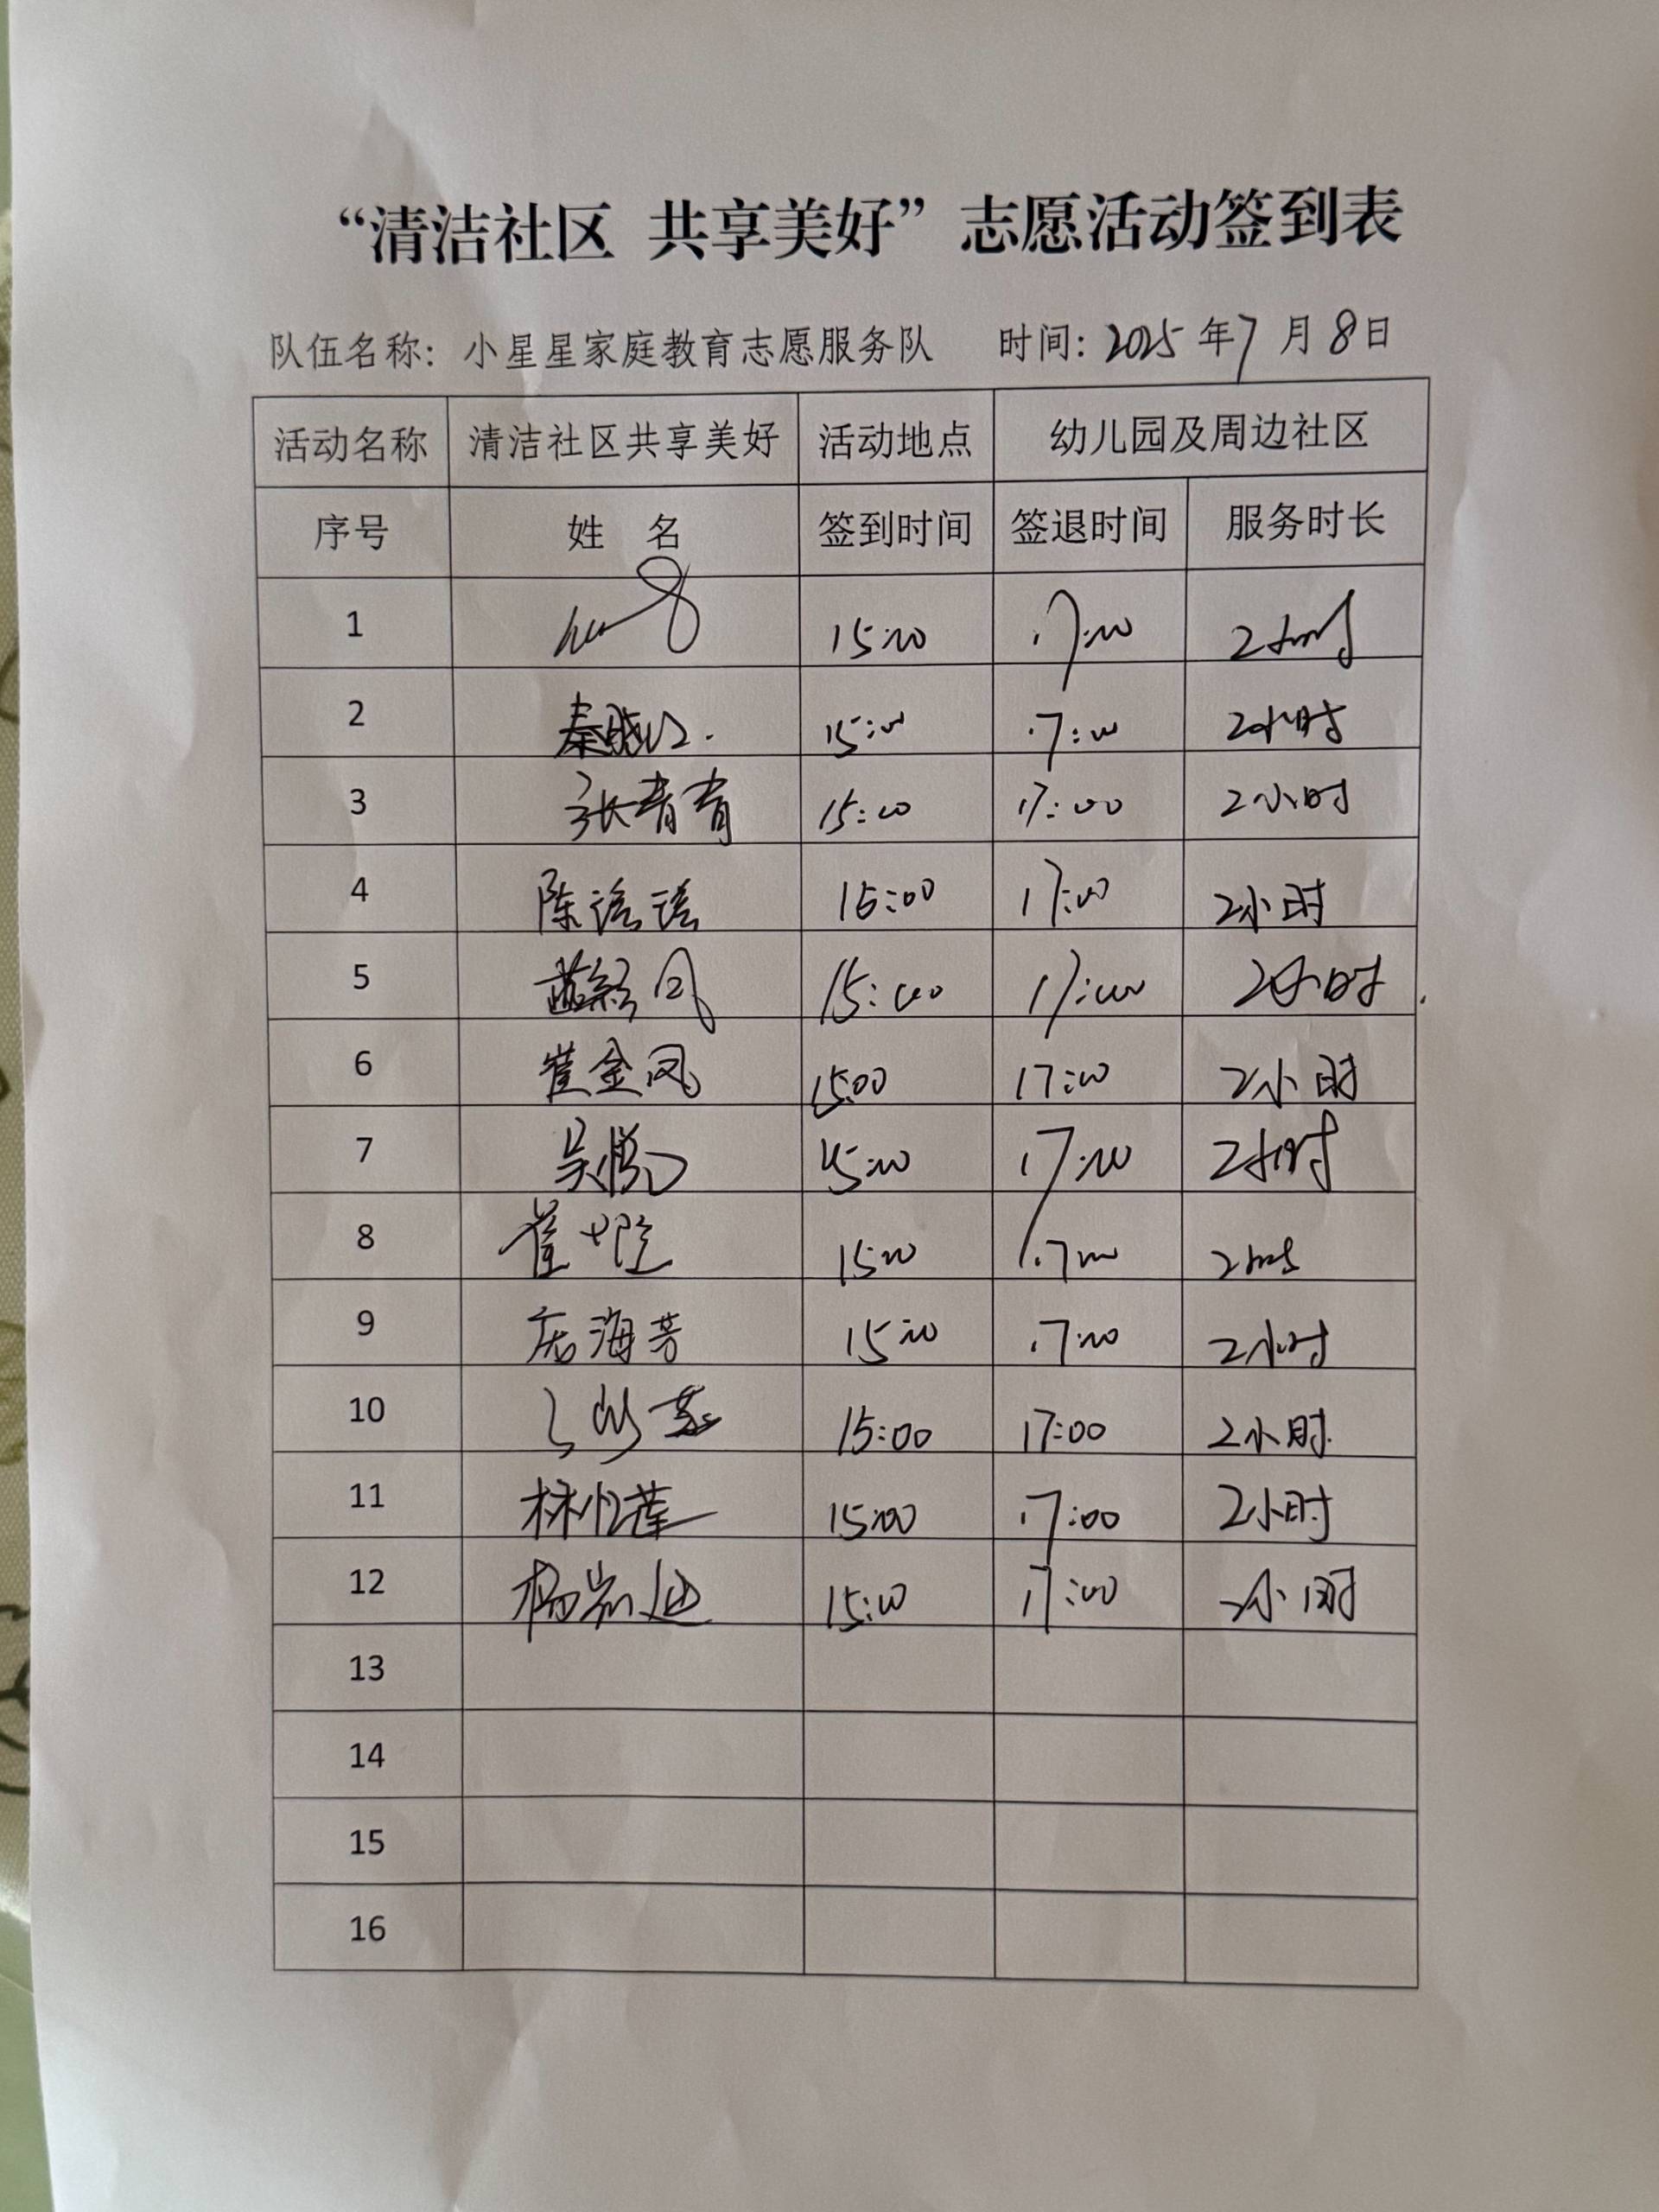 “清洁社区 共享美好”志愿活动签到表
队伍名称：小星星家庭教育志愿服务队 时间：2025年7月8日
活动名称 清洁社区共享美好 活动地点 幼儿园及周边社区
序号 姓 名 签到时间 签退时间 服务时长
1 15:00 17:00 2小时
2 秦晓 15:00 17:00 2小时
3 张青青 15:00 17:00 2小时
4 陈谣谣 15:00 17:00 2小时
5 15:00 17:00 2小时
6 崔金凤 1500 17:00 2小时
7 吴 15:00 17:00 2小时
8 崔 15:00 17:00
9 海芳 15:00 17:00 2小时
10 15:00 17:00 2小时
11 林 莲 15:00 17:00 2小时
12 杨 迪 15:00 17:00 2小时
13
14
15
16